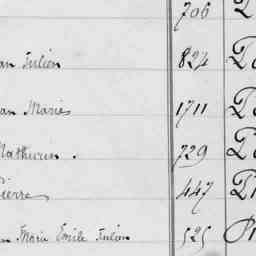 706
an Julien 824
an Marie 1711
Mathurin. 729
Pierre 447
n Marie Emile Julien 525